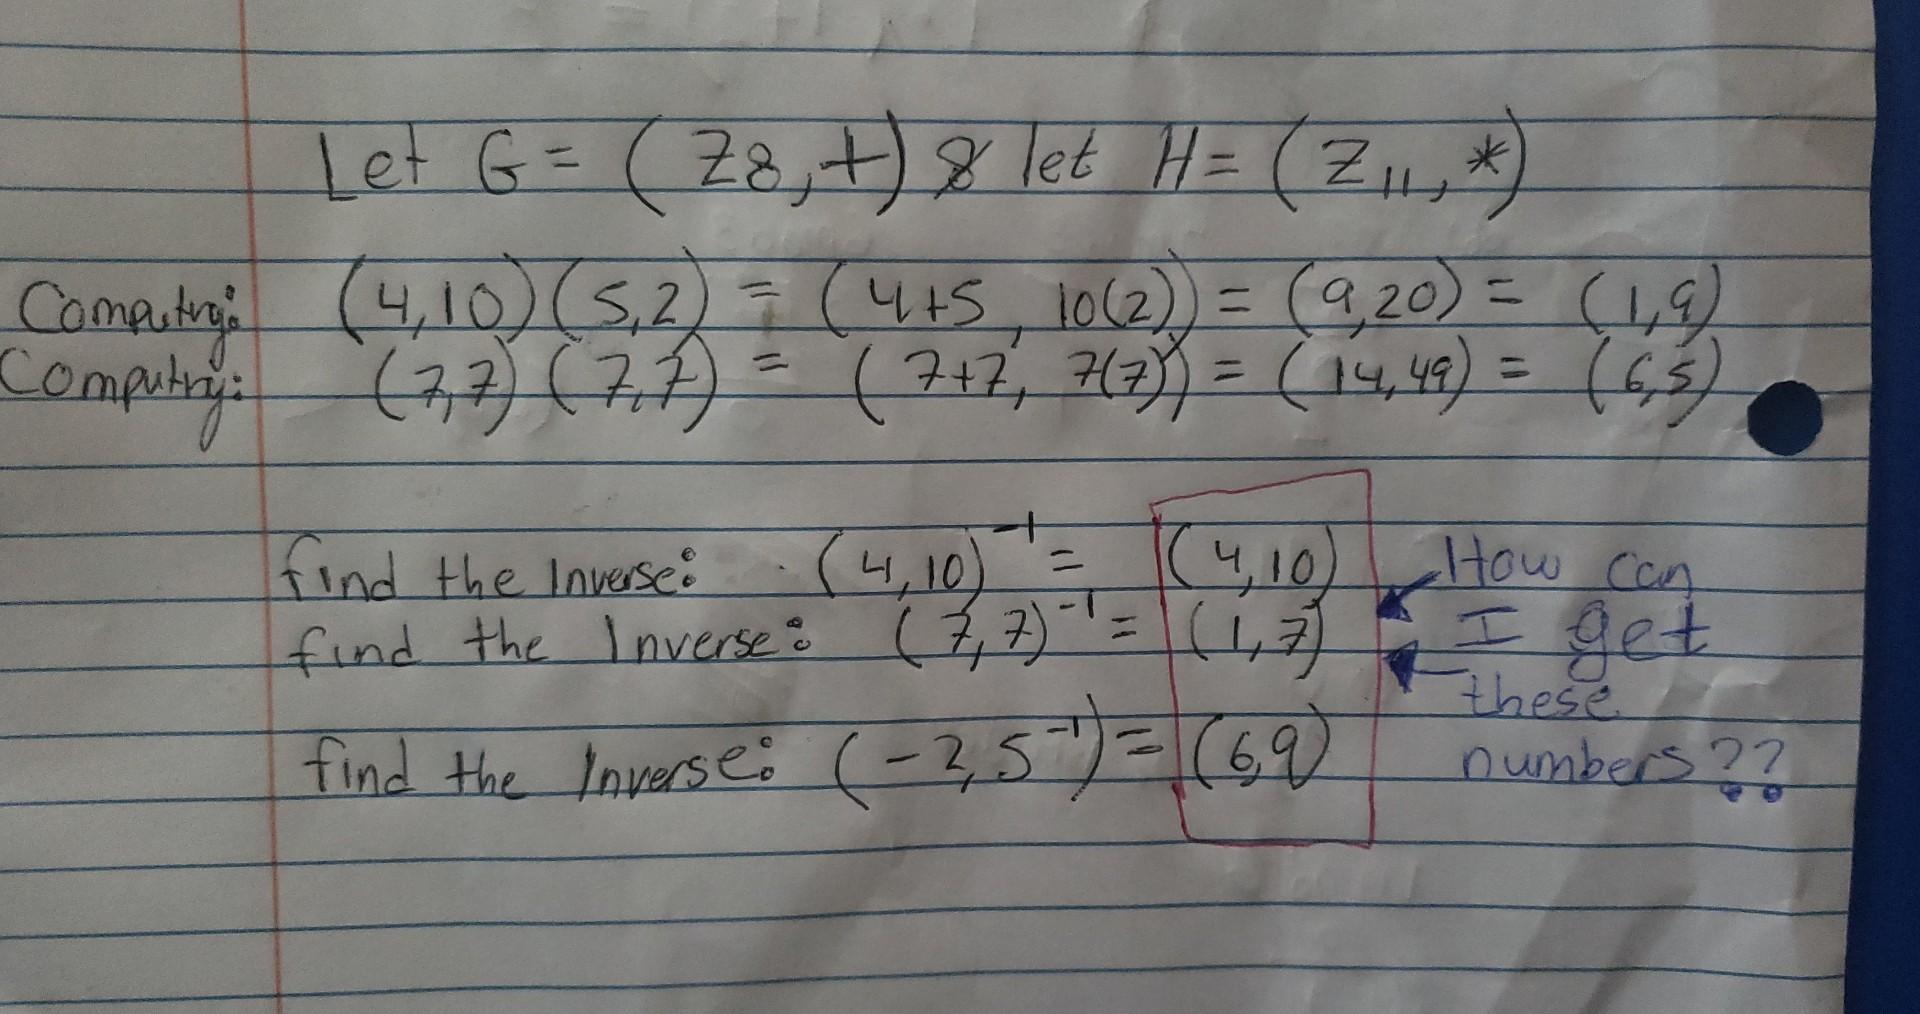 Let G = (Z8, +) & let H = (Z11, *)
Computing: (4,10)(5,2) = (4+5, 10(2)) = (9,20) = (1,9)
Computing: (7,7)(7,7) = (7+7, 7(7)) = (14,49) = (6,5)
find the Inverse: (4,10)⁻¹ = (4,10)
find the Inverse: (7,7)⁻¹ = (1,7)
find the Inverse: (-2,5⁻¹) = (6,9)
How can
I get
these
numbers??